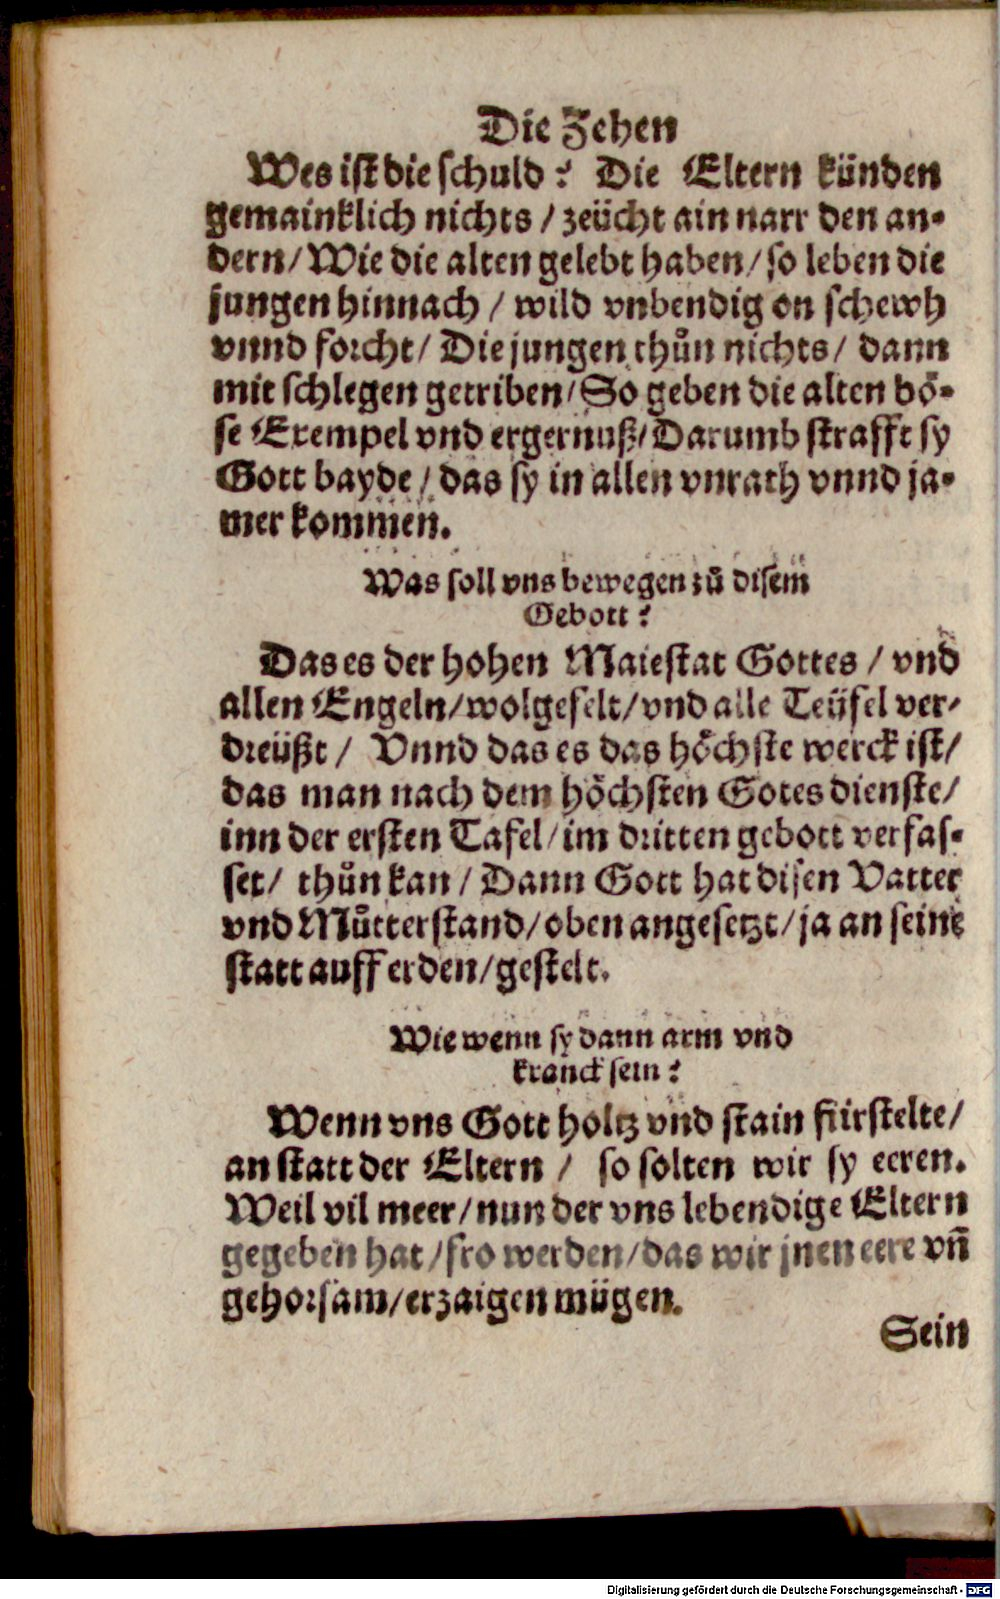 Die Zehen
Wes ist die schuld? Die Eltern künden
gemainklich nichts / zeücht ain narr den an-
dern / Wie die alten gelebt haben / so leben die
jungen hinnach / wild vnbendig on schewh
vnnd forcht / Die jungen thůn nichts / dann
mit schlegen getriben / So geben die alten bö-
se Exempel vnd ergernuß / Darumb strafft sy
Gott bayde / das sy in allen vnrath vnnd ja-
mer kommen.
Was soll vns bewegen zů disem
Gebott?
Das es der hohen Maiestat Gottes / vnd
allen Engeln / wolgefelt / vnd alle Teüfel ver-
dreüßt / Vnnd das es das höchste werck ist /
das man nach dem höchsten Gotes dienste /
inn der ersten Tafel / im dritten gebott verfas-
set / thůn kan / Dann Gott hat disen Vatter
vnd Můtterstand / oben angesetzt / ja an seine
statt auff erden / gestelt.
Wie wenn sy dann arm vnd
kranck sein?
Wenn vns Gott holtz vnd stain fürstelte /
an statt der Eltern / so solten wir sy eeren.
Weil vil meer / nun der vns lebendige Eltern
gegeben hat / fro werden / das wir jnen eere vñ
gehorsam / erzaigen mügen.
Sein
Digitalisierung gefördert durch die Deutsche Forschungsgemeinschaft - DFG